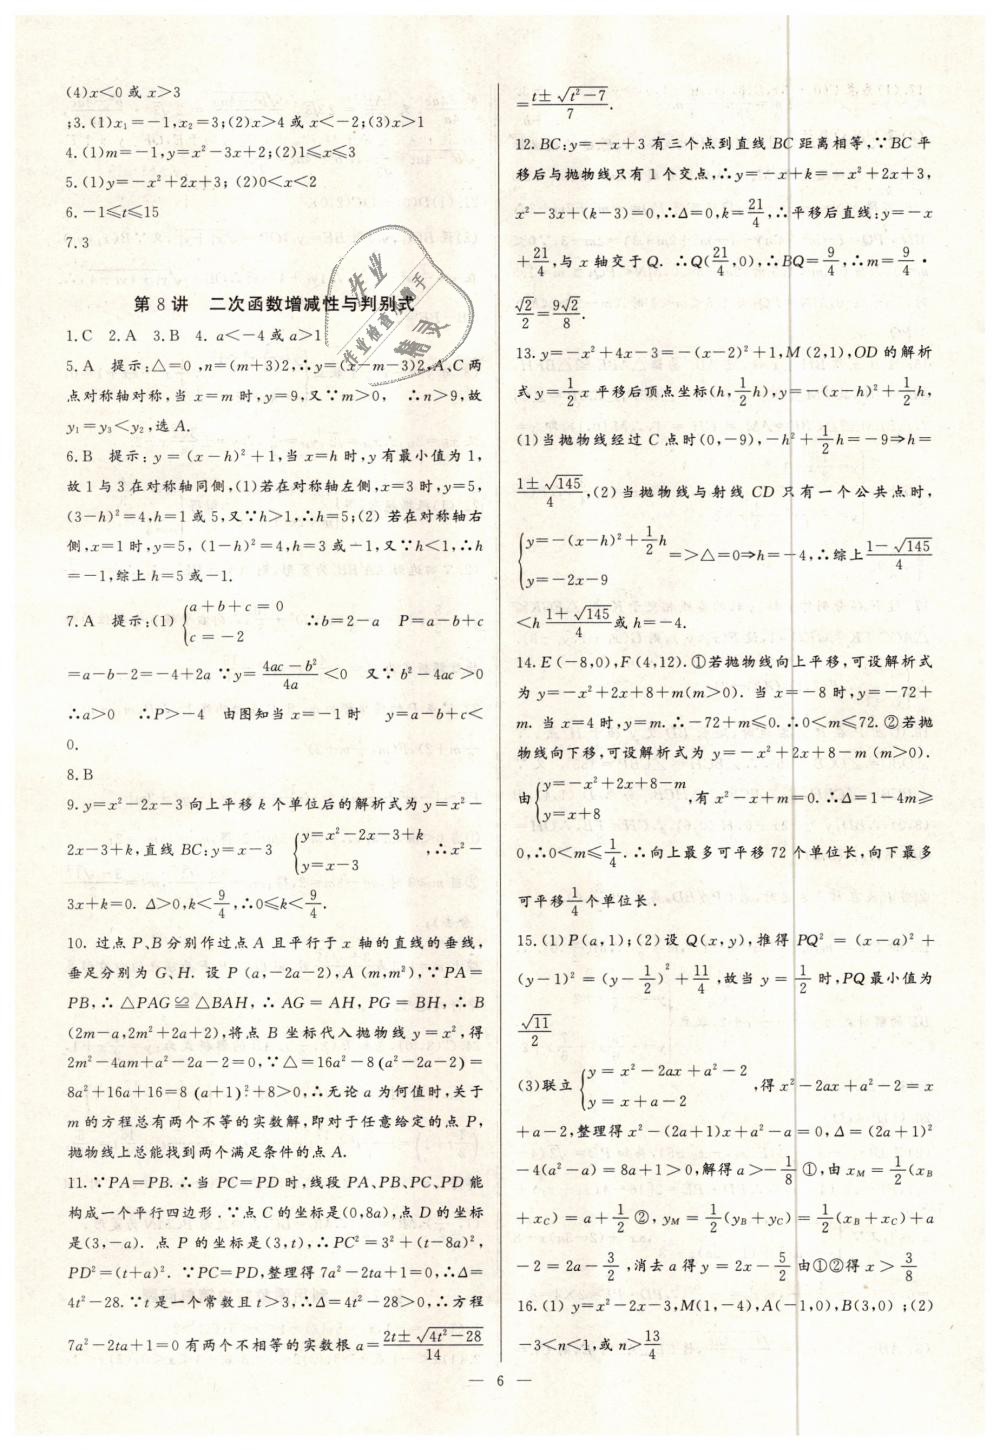 (4)x<0 或 x>3
;3.(1)x₁=-1,x₂=3;(2)x>4 或 x<-2;(3)x>1
4.(1)m=-1,y=x²-3x+2;(2)1≤x≤3
5.(1)y=-x²+2x+3; (2)0<x<2
6.-1≤t≤15
7.3
第 8 讲 二次函数增减性与判别式
1.C 2.A 3.B 4. a<-4 或 a>1
5.A 提示:△=0,n=(m+3)2,∴y=(x-m-3)2,A、C 两
点对称轴对称,当 x=m 时,y=9,又∵m>0, ∴n>9,故
y₁=y₃<y₂,选 A.
6.B 提示: y=(x-h)²+1,当 x=h 时,y 有最小值为 1,
故 1 与 3 在对称轴同侧,(1)若在对称轴左侧,x=3 时,y=5,
(3-h)²=4,h=1 或 5,又∵h>1,∴h=5;(2) 若在对称轴右
侧,x=1 时,y=5, (1-h)²=4,h=3 或-1,又∵h<1,∴h
=-1,综上 h=5 或-1.
7.A 提示:(1) {a+b+c=0 c=-2 ∴b=2-a P=a-b+c
=a-b-2=-4+2a ∵y=(4ac-b²)/(4a)<0 又∵b²-4ac>0
∴a>0 ∴P>-4 由图知当 x=-1 时 y=a-b+c<
0.
8.B
9.y=x²-2x-3 向上平移 k 个单位后的解析式为 y=x²-
2x-3+k,直线 BC:y=x-3 {y=x²-2x-3+k y=x-3 ,∴x²-
3x+k=0. Δ>0,k<9/4,∴0≤k<9/4.
10. 过点 P、B 分别作过点 A 且平行于 x 轴的直线的垂线,
垂足分别为 G、H. 设 P (a,-2a-2),A (m,m²),∵PA=
PB,∴△PAG≌△BAH,∴AG=AH,PG=BH,∴B
(2m-a,2m²+2a+2),将点 B 坐标代入抛物线 y=x²,得
2m²-4am+a²-2a-2=0,∵△=16a²-8(a²-2a-2)=
8a²+16a+16=8 (a+1)²+8>0,∴无论 a 为何值时,关于
m 的方程总有两个不等的实数解,即对于任意给定的点 P,
抛物线上总能找到两个满足条件的点 A.
11.∵PA=PB.∴当 PC=PD 时,线段 PA、PB、PC、PD 能
构成一个平行四边形.∵点 C 的坐标是(0,8a),点 D 的坐标
是(3,-a). 点 P 的坐标是(3,t),∴PC²=3²+(t-8a)²,
PD²=(t+a)². ∵PC=PD,整理得 7a²-2ta+1=0,∴Δ=
4t²-28.∵t 是一个常数且 t>3,∴Δ=4t²-28>0,∴方程
7a²-2ta+1=0 有两个不相等的实数根 a=(2t±√(4t²-28))/14
=(t±√(t²-7))/7.
12. BC:y=-x+3 有三个点到直线 BC 距离相等,∵BC 平
移后与抛物线只有 1 个交点,∴y=-x+k=-x²+2x+3,
x²-3x+(k-3)=0,∴Δ=0,k=21/4,∴平移后直线:y=-x
+21/4,与 x 轴交于 Q. ∴Q(21/4,0),∴BQ=9/4,∴m=9/4·
√2/2=9√2/8.
13. y=-x²+4x-3=-(x-2)²+1,M(2,1),OD 的解析
式 y=1/2x 平移后顶点坐标(h,1/2h),y=-(x-h)²+1/2h,
(1)当抛物线经过 C 点时(0,-9),-h²+1/2h=-9⇒h=
(1±√145)/4,(2)当抛物线与射线 CD 只有一个公共点时,
{y=-(x-h)²+1/2h y=-2x-9 =>△=0⇒h=-4,∴综上(1-√145)/4
<h(1+√145)/4或 h=-4.
14. E(-8,0),F(4,12).①若抛物线向上平移,可设解析式
为 y=-x²+2x+8+m(m>0). 当 x=-8 时,y=-72+
m. 当 x=4 时,y=m.∴-72+m≤0.∴0<m≤72.②若抛
物线向下移,可设解析式为 y=-x²+2x+8-m (m>0).
由{y=-x²+2x+8-m y=x+8 ,有 x²-x+m=0.∴Δ=1-4m≥
0,∴0<m≤1/4.∴向上最多可平移 72 个单位长,向下最多
可平移1/4个单位长.
15.(1)P(a,1);(2)设 Q(x,y),推得 PQ²=(x-a)²+
(y-1)²=(y-1/2)²+11/4,故当 y=1/2 时,PQ 最小值为
√11/2
(3)联立 {y=x²-2ax+a²-2 y=x+a-2 ,得 x²-2ax+a²-2=x
+a-2,整理得 x²-(2a+1)x+a²-a=0,Δ=(2a+1)²
-4(a²-a)=8a+1>0,解得 a>-1/8 ①,由 x_M=1/2(x_B
+x_C)=a+1/2 ②,y_M=1/2(y_B+y_C)=1/2(x_B+x_C)+a
-2=2a-3/2,消去 a 得 y=2x-5/2 由①②得 x>3/8
16.(1) y=x²-2x-3,M(1,-4),A(-1,0),B(3,0) ;(2)
-3<n<1,或 n>13/4
— 6 —
作业
作业检查小帮手
精灵